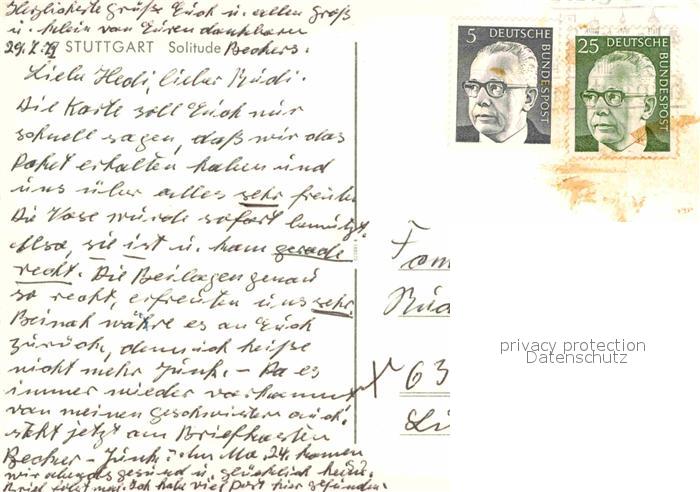 Herzlichste Grüße Euch u. allen groß
u. klein von Euren dankbaren
29.7.73 STUTTGART Solitude Bechers.
Liebe Hedi, lieber Rudi.
Die Karte soll Euch nur
schnell sagen, daß wir das
Paket erhalten haben und
uns über alles sehr freuten
Die Vase wurde sofort benützt.
Also, sie ist u. kam gerade
recht. Die Beilagen genau
so recht, erfreuten uns sehr.
Beinah währe es an Euch
zurück, denn ich heiße
nicht mehr Jünk. - Da es
immer wieder vorkommt
von meinen Geschwistern auch,
steht jetzt am Briefkasten
Becher - Jünk. Am 24. kamen
wir abends gesund u. glücklich heim.
Brief folgt. Ich habe viel Post hier gefunden.
5 DEUTSCHE
BUNDESPOST
25 DEUTSCHE
BUNDESPOST
Fam
Rud
63
Li
privacy protection
Datenschutz